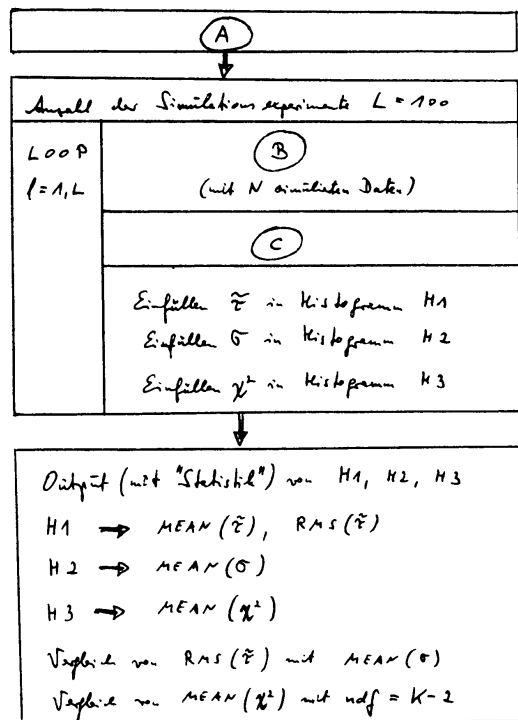 A
Anzahl der Simulationsexperimente L = 100
LOOP
l = 1, L
B
(mit N simulierten Daten)
C
Einfüllen τ̃ in Histogramm H1
Einfüllen σ in Histogramm H2
Einfüllen χ² in Histogramm H3
Output (mit "Statistik") von H1, H2, H3
H1 → MEAN(τ̃), RMS(τ̃)
H2 → MEAN(σ)
H3 → MEAN(χ²)
Vergleich von RMS(τ̃) mit MEAN(σ)
Vergleich von MEAN(χ²) mit ndf = K-2